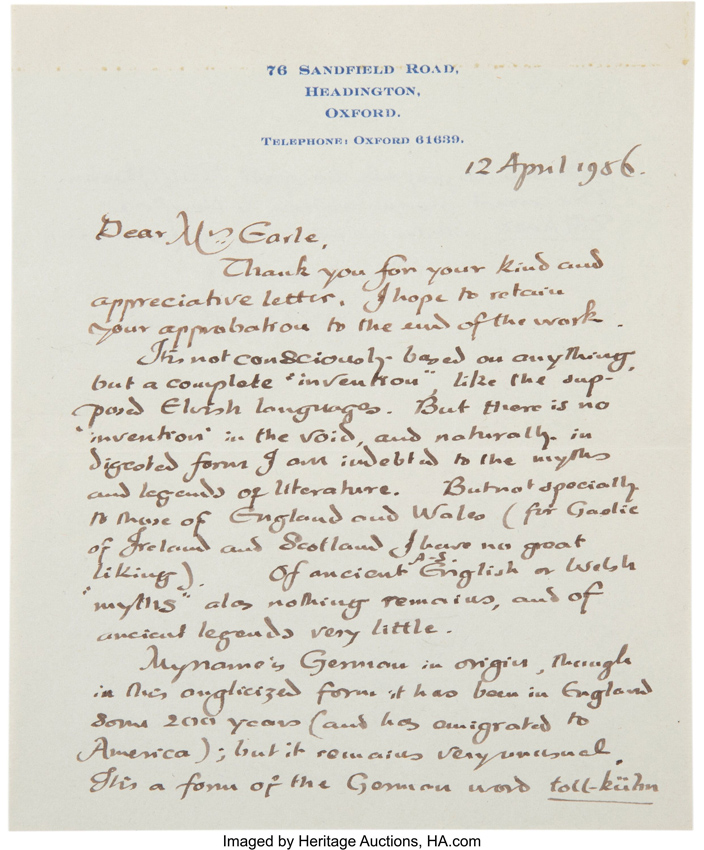 76 SANDFIELD ROAD,
HEADINGTON,
OXFORD.
TELEPHONE: OXFORD 61639.
12 April 1956.
Dear Mrs Earle,
Thank you for your kind and
appreciative letter. I hope to retain
your approbation to the end of the work.
It is not consciously based on anything,
but a complete "invention", like the sup-
posed Elvish languages. But there is no
'invention' in the void, and naturally in
digested form I am indebted to the myths
and legends of literature. But not specially
to those of England and Wales (for Gaelic
of Ireland and Scotland I have no great
liking). Of ancient A-S English or Welsh
"myths" alas nothing remains, and of
ancient legends very little.
My name is German in origin, though
in this anglicized form it has been in England
some 200 years (and has emigrated to
America); but it remains very unusual.
It is a form of the German word toll-kühn
Imaged by Heritage Auctions, HA.com